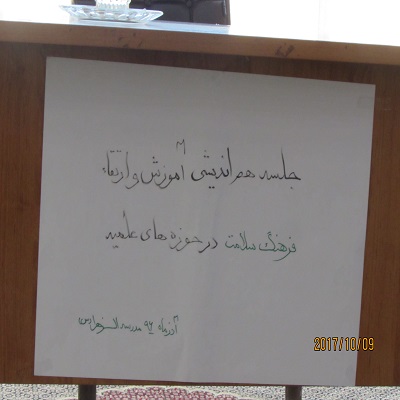 جلسه هم اندیشی آموزش و ارتقاء
فرهنگ سلامت در حوزه های علمیه
آذرماه ۹۶ مدرسه الزهراس
2017/10/09